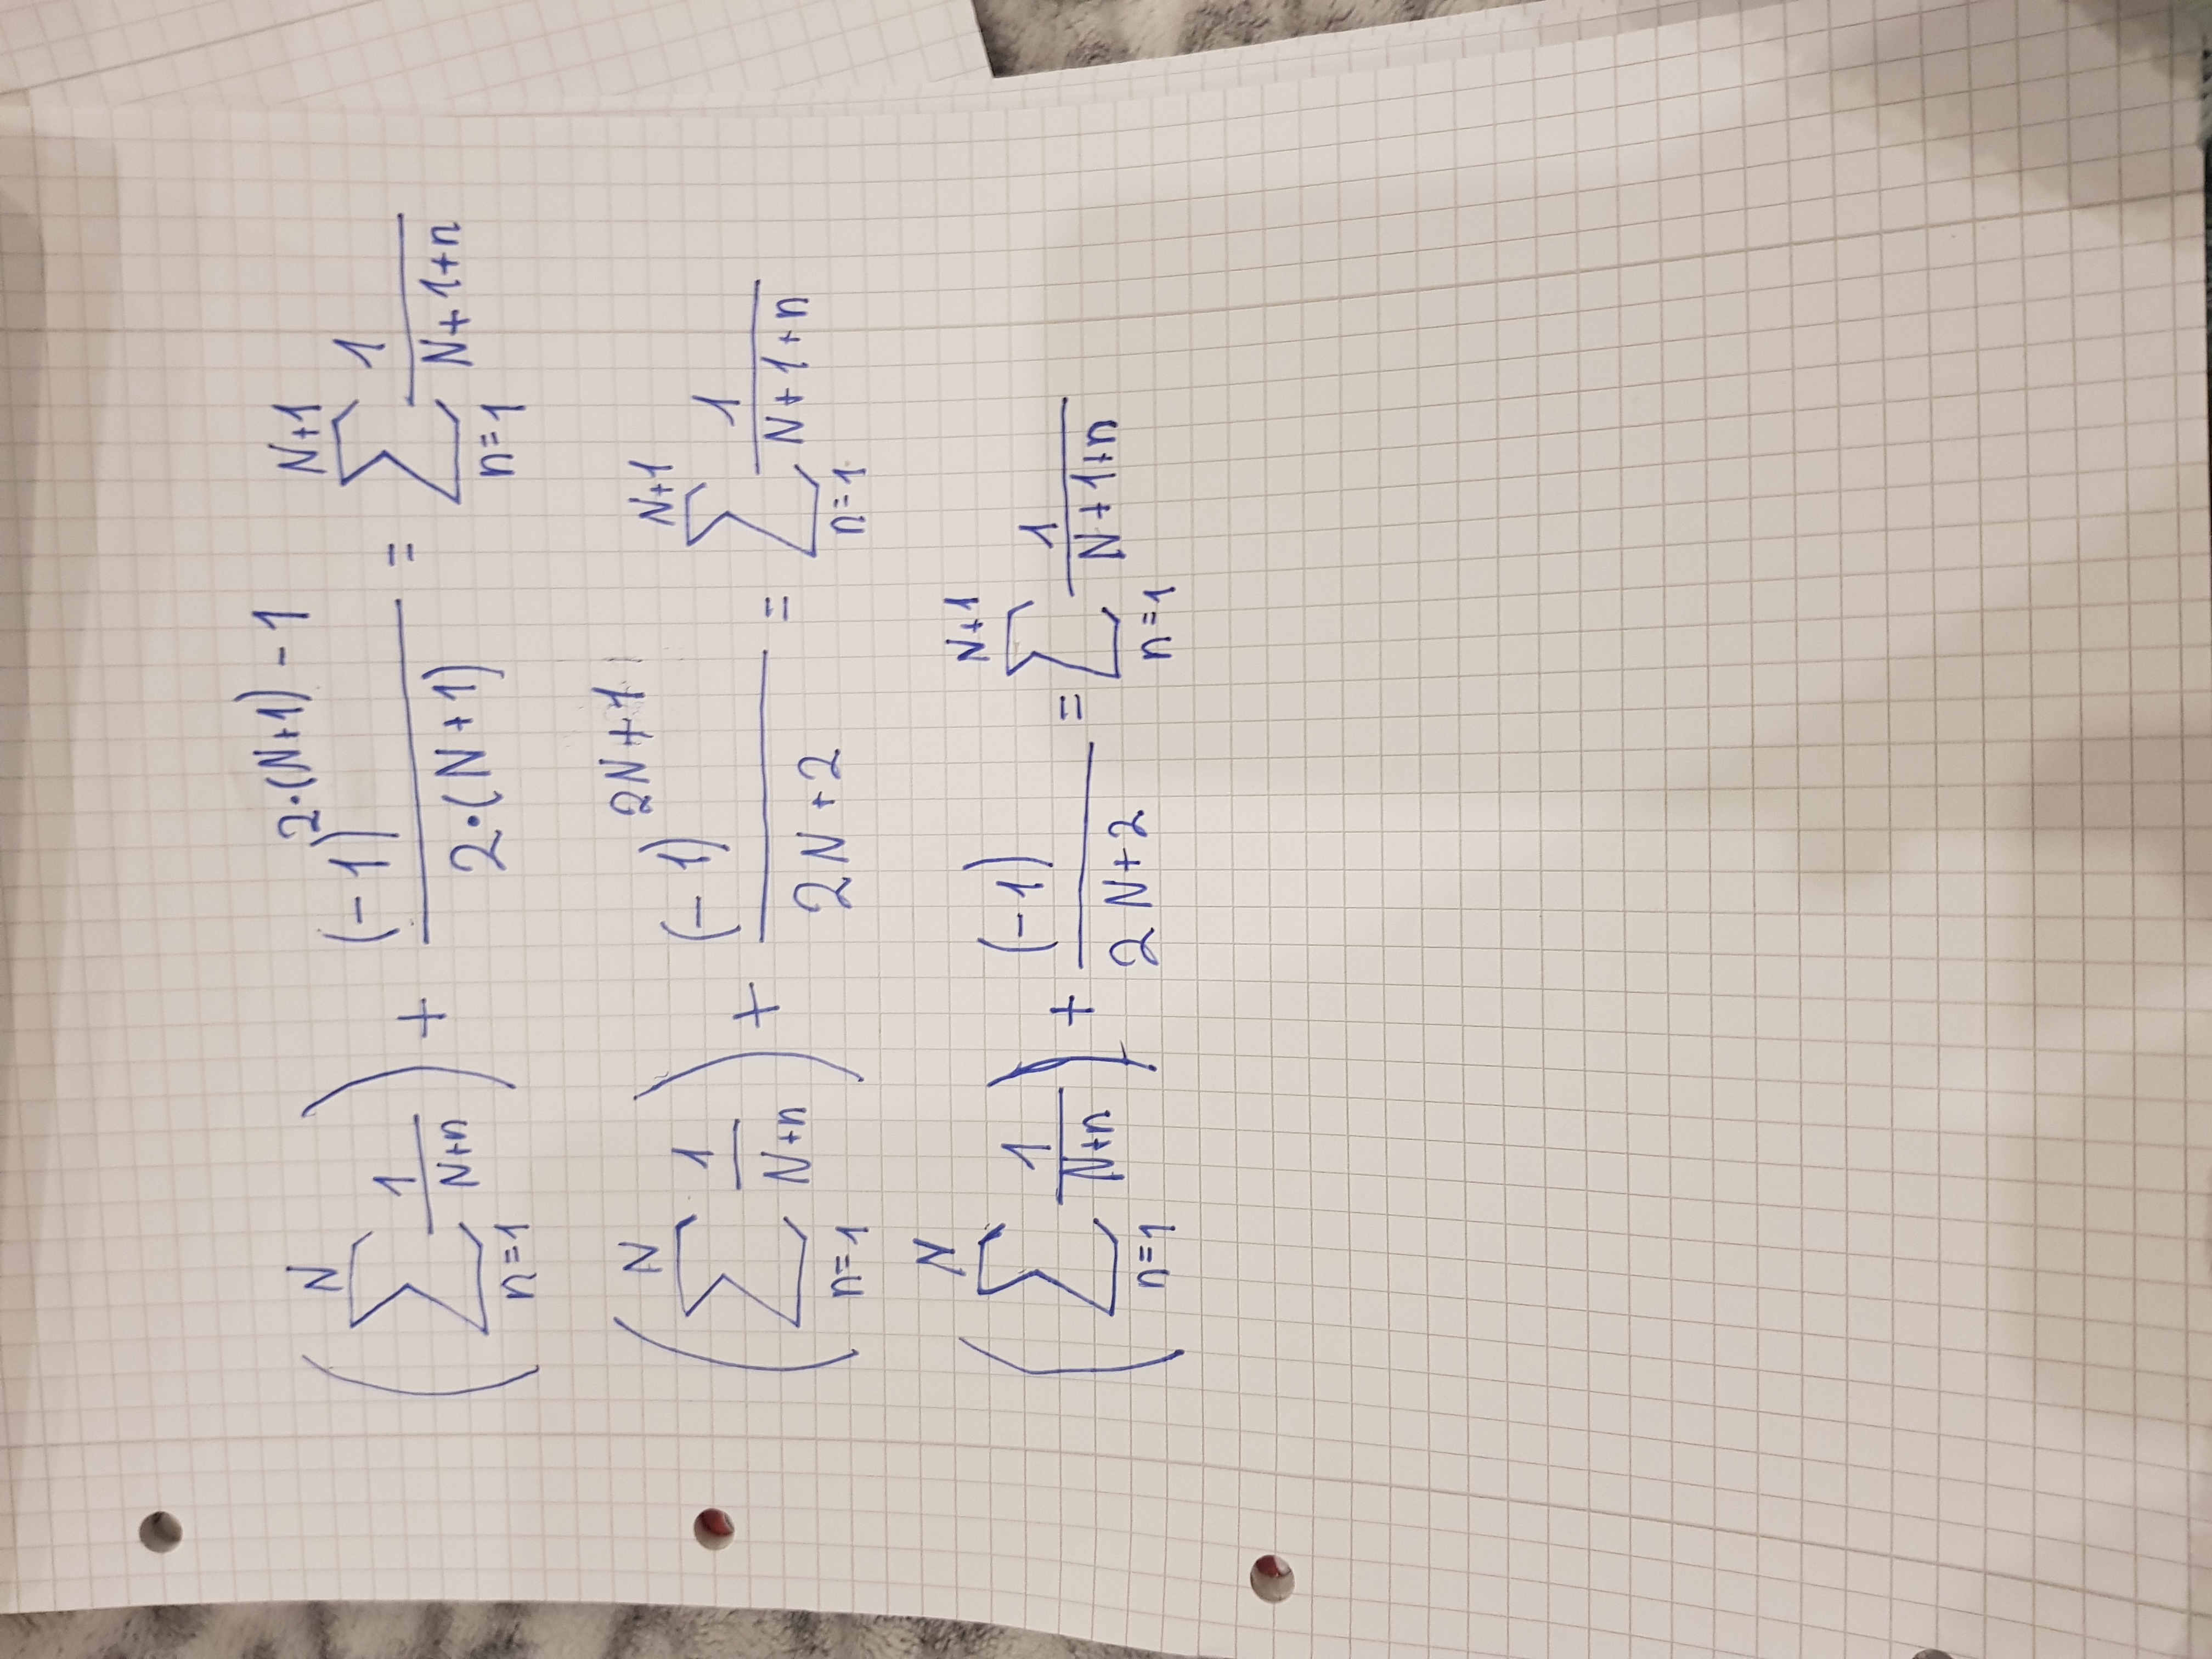 $\left(\sum_{n=1}^{N} \frac{1}{N+n}\right) + \frac{(-1)^{2\cdot(N+1)-1}}{2\cdot(N+1)} = \sum_{n=1}^{N+1} \frac{1}{N+1+n}$
$\left(\sum_{n=1}^{N} \frac{1}{N+n}\right) + \frac{(-1)^{2N+1}}{2N+2} = \sum_{n=1}^{N+1} \frac{1}{N+1+n}$
$\left(\sum_{n=1}^{N} \frac{1}{N+n}\right) + \frac{(-1)}{2N+2} = \sum_{n=1}^{N+1} \frac{1}{N+1+n}$